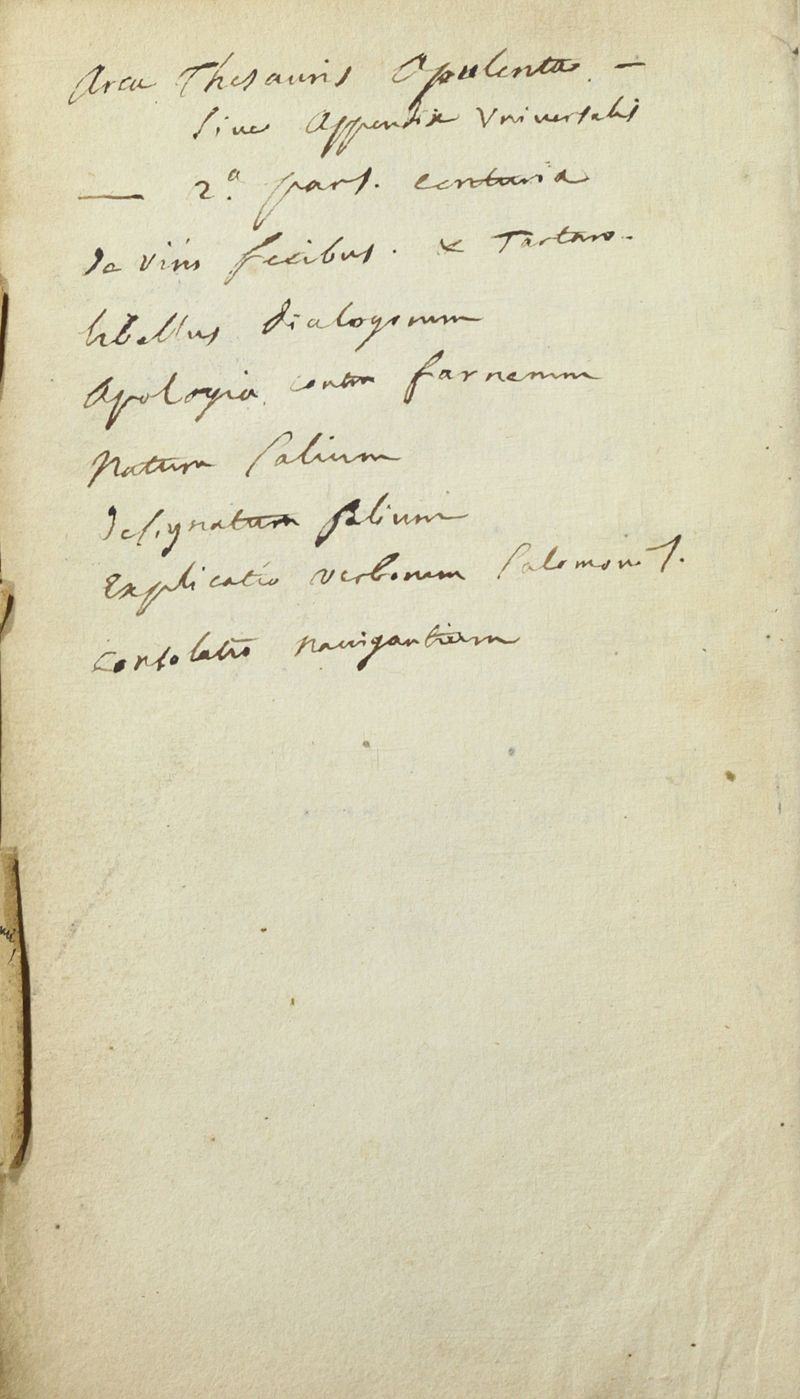 Arca Thesauris Opulenta —
sive Appendix Universalis
— 2.a pars. centuria
de vini fecibus. & Tartaro.
libellus dialogorum
Apologia contra farnerum
Natura Salium
de signatura salium
Explicatio verborum Salomonis.
Consolatio navigantium